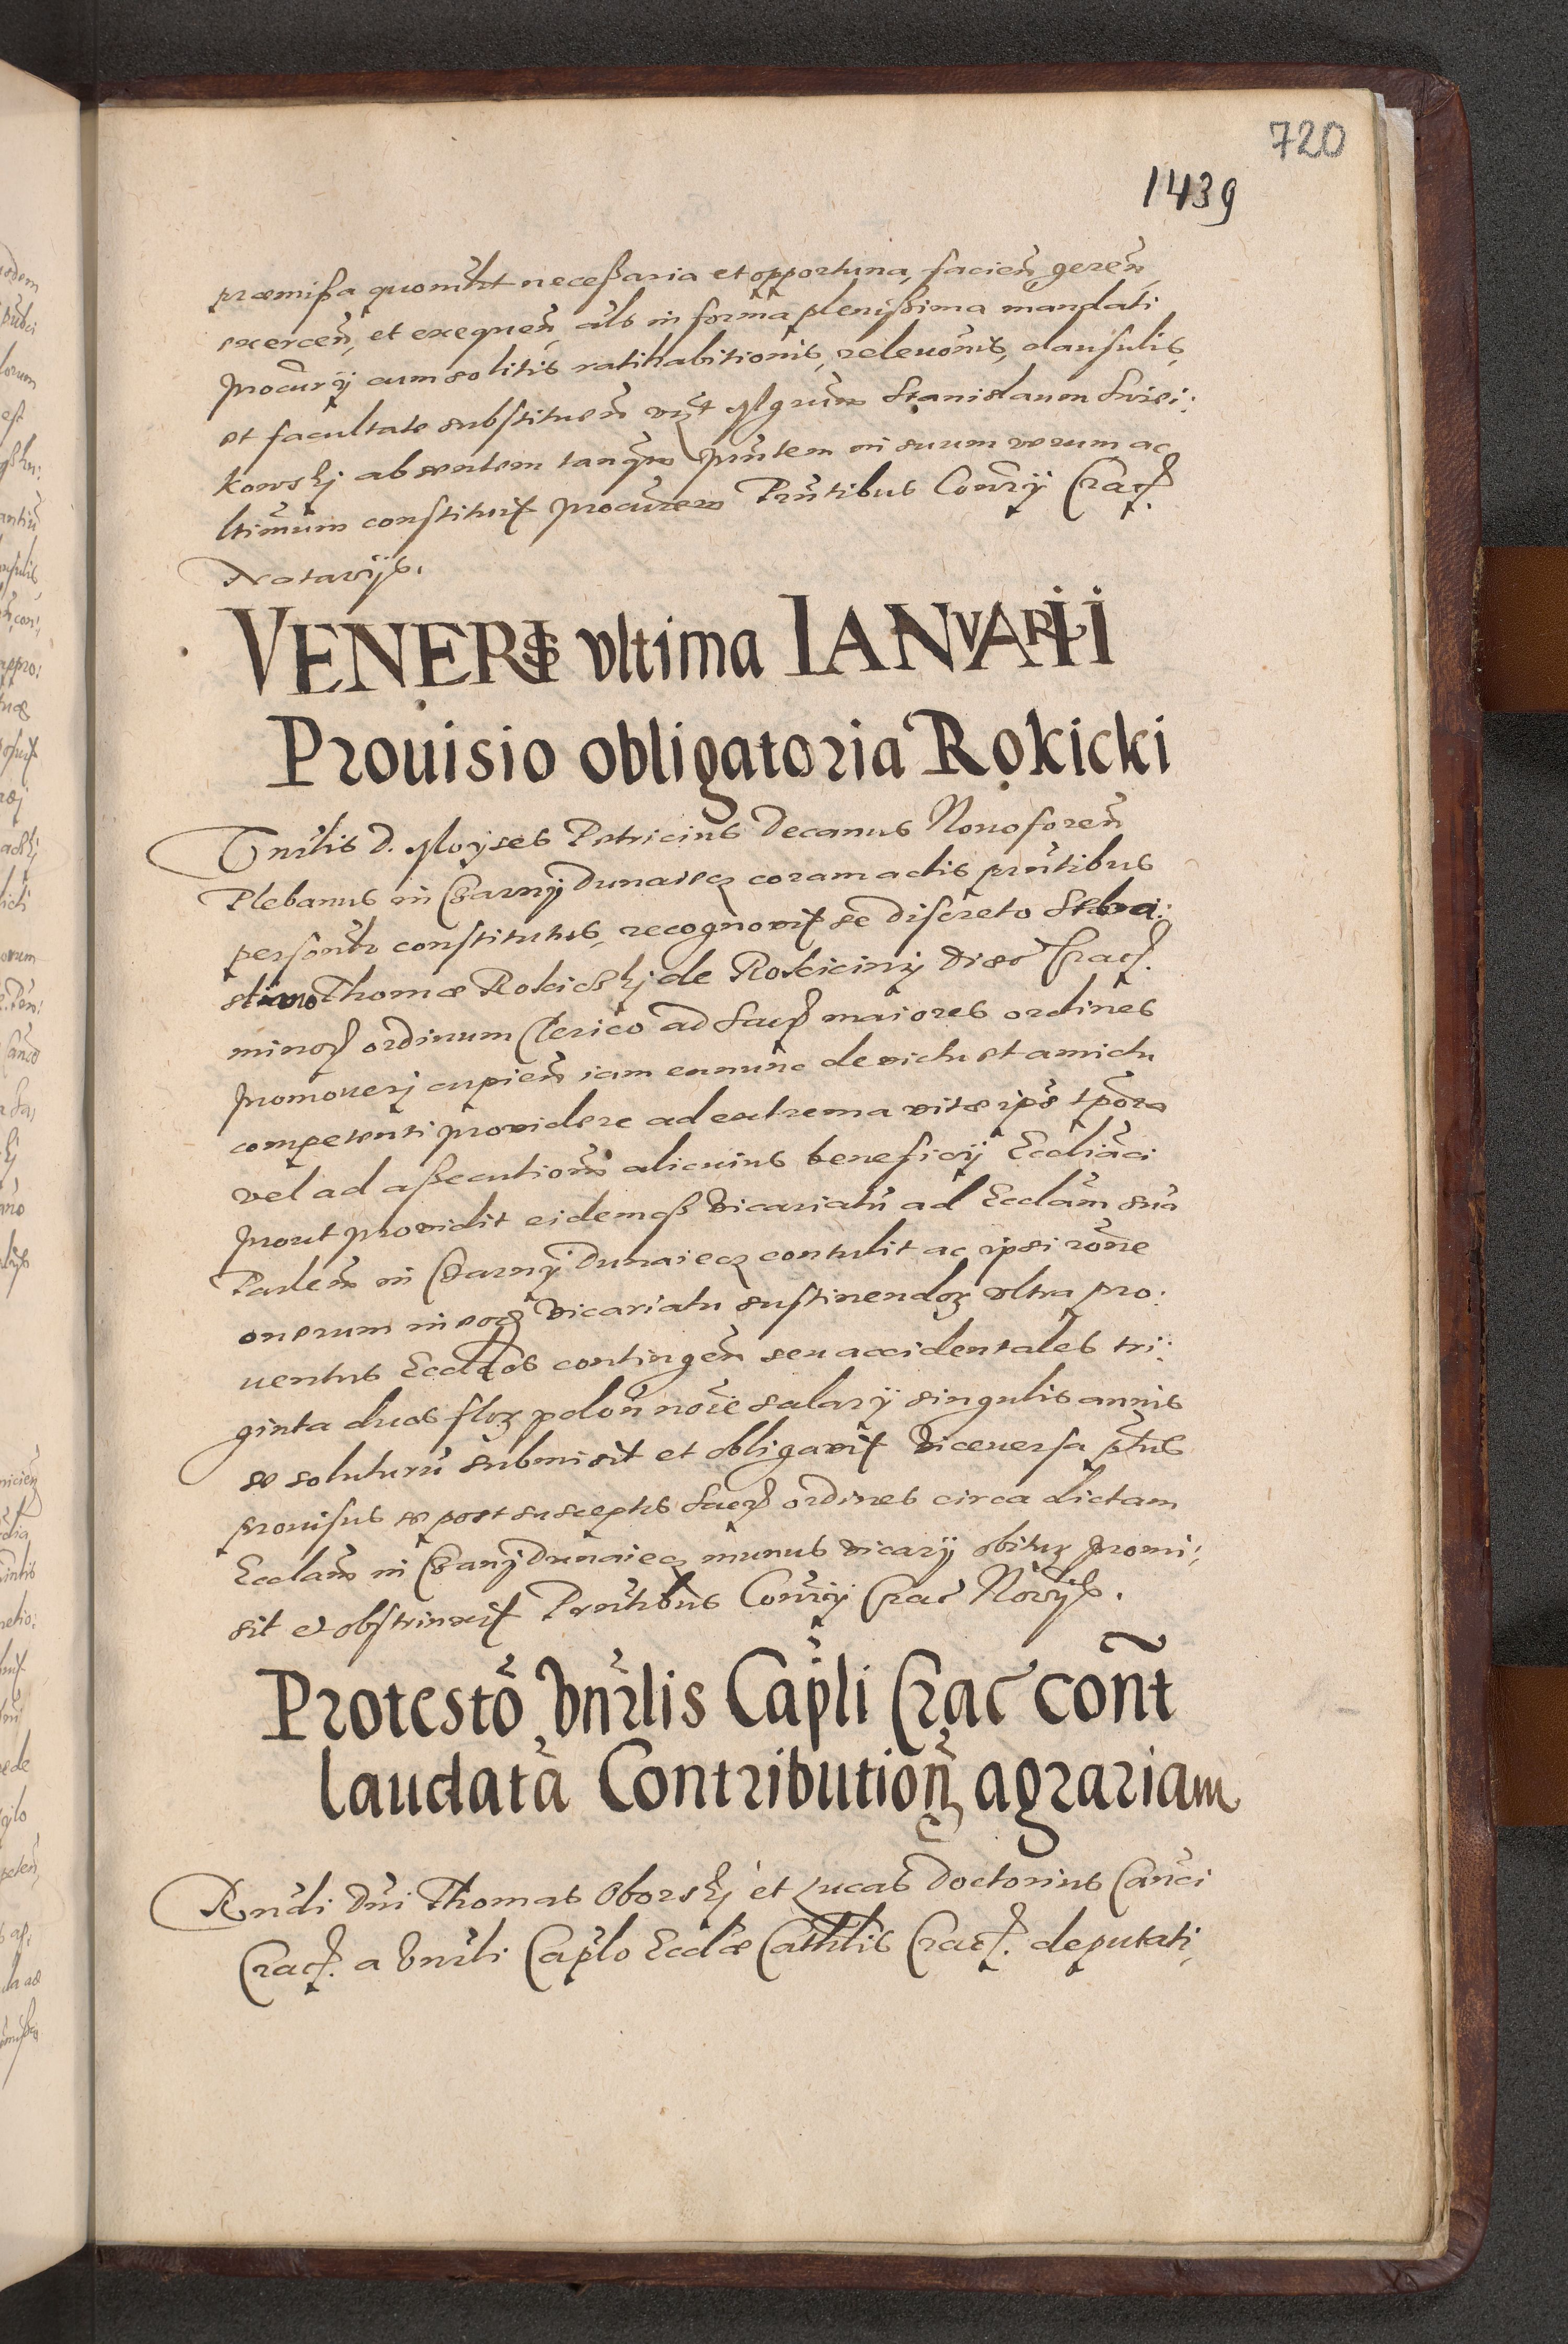 720
1439
præmissa quomlt necessaria et opportuna, facien̄, geren̄,
exercen̄, et exequen̄, als in forma plenissima mandati
procurij cum solitis ratihabitionis, releuonis, clausulis,
et facultate substituen̄ vzt Mgrum Stanislaum Swiei:
kowskj absentem tanqm pn̄tem in suum verum ac
ltimum constituit procurem Pn̄tibus Con̄rij Crac.
Notarijs.
VENERIS vltima IANVARII
Prouisio obligatoria Rokicki
Vn̄rlis D. Moyses Petricius Decanus Nouoforen̄
Plebanus in Czarnÿ Dunaiecz coram actis pn̄tibus
personlr constitutus, recognouit se discreto Seba:
stiano Thomæ Rokicskj de Rokicinÿ Dioec Crac.
minor ordinum Clerico ad Sacr maiores ordines
promouerj cupien̄ iam ex nunc de victu et amictu
competenti prouidere ad extrema vitæ ips tpora
vel ad assecutionem alicuius beneficij Eccliāci
prout prouidit eidemq Vicariatū ad Ecclam suā
Parlem in Czarnÿ Dunaiecz contulit ac ipsi rōne
onerum in eod Vicariatu sustinendor vltra pro:
uentus Ecclæ os contingen̄ seu accidentales tri:
ginta duos flor polon̄ noīe salarij singulis annis
se soluturū submisit et obligauit Viceuersa ptus
prouisus se post susceptos Sacr ordines circa dictam
Ecclam in Czarnÿ Dunaiecz munus vicarij obitur promi:
sit et obstrinxit Pn̄tibus Con̄rij Crac Norijs.
Protestō Vn̄rlis Capli Crac cont
laudatā Contribution̄ agrariam
Rn̄di Dn̄i Thomas Oborskj et Lucas Doctorius Canci
Crac. a Vn̄rli Caplo Ecclæ Cathlis Crac. deputati,